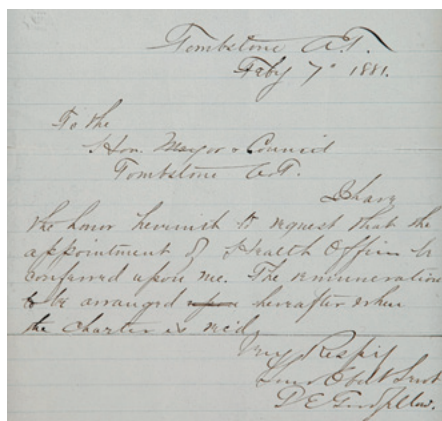 Tombstone A.T.
Feby 7th 1881.
To the
Hon. Mayor & Council
Tombstone A.T.
I have
the honor herewith to request that the
appointment of Health Officer be
conferred upon me. The remuneration
to be arranged upon hereafter when
the Charter is rec'd
Very Respfy
Your Obdt Servt
D E Goodfellow.